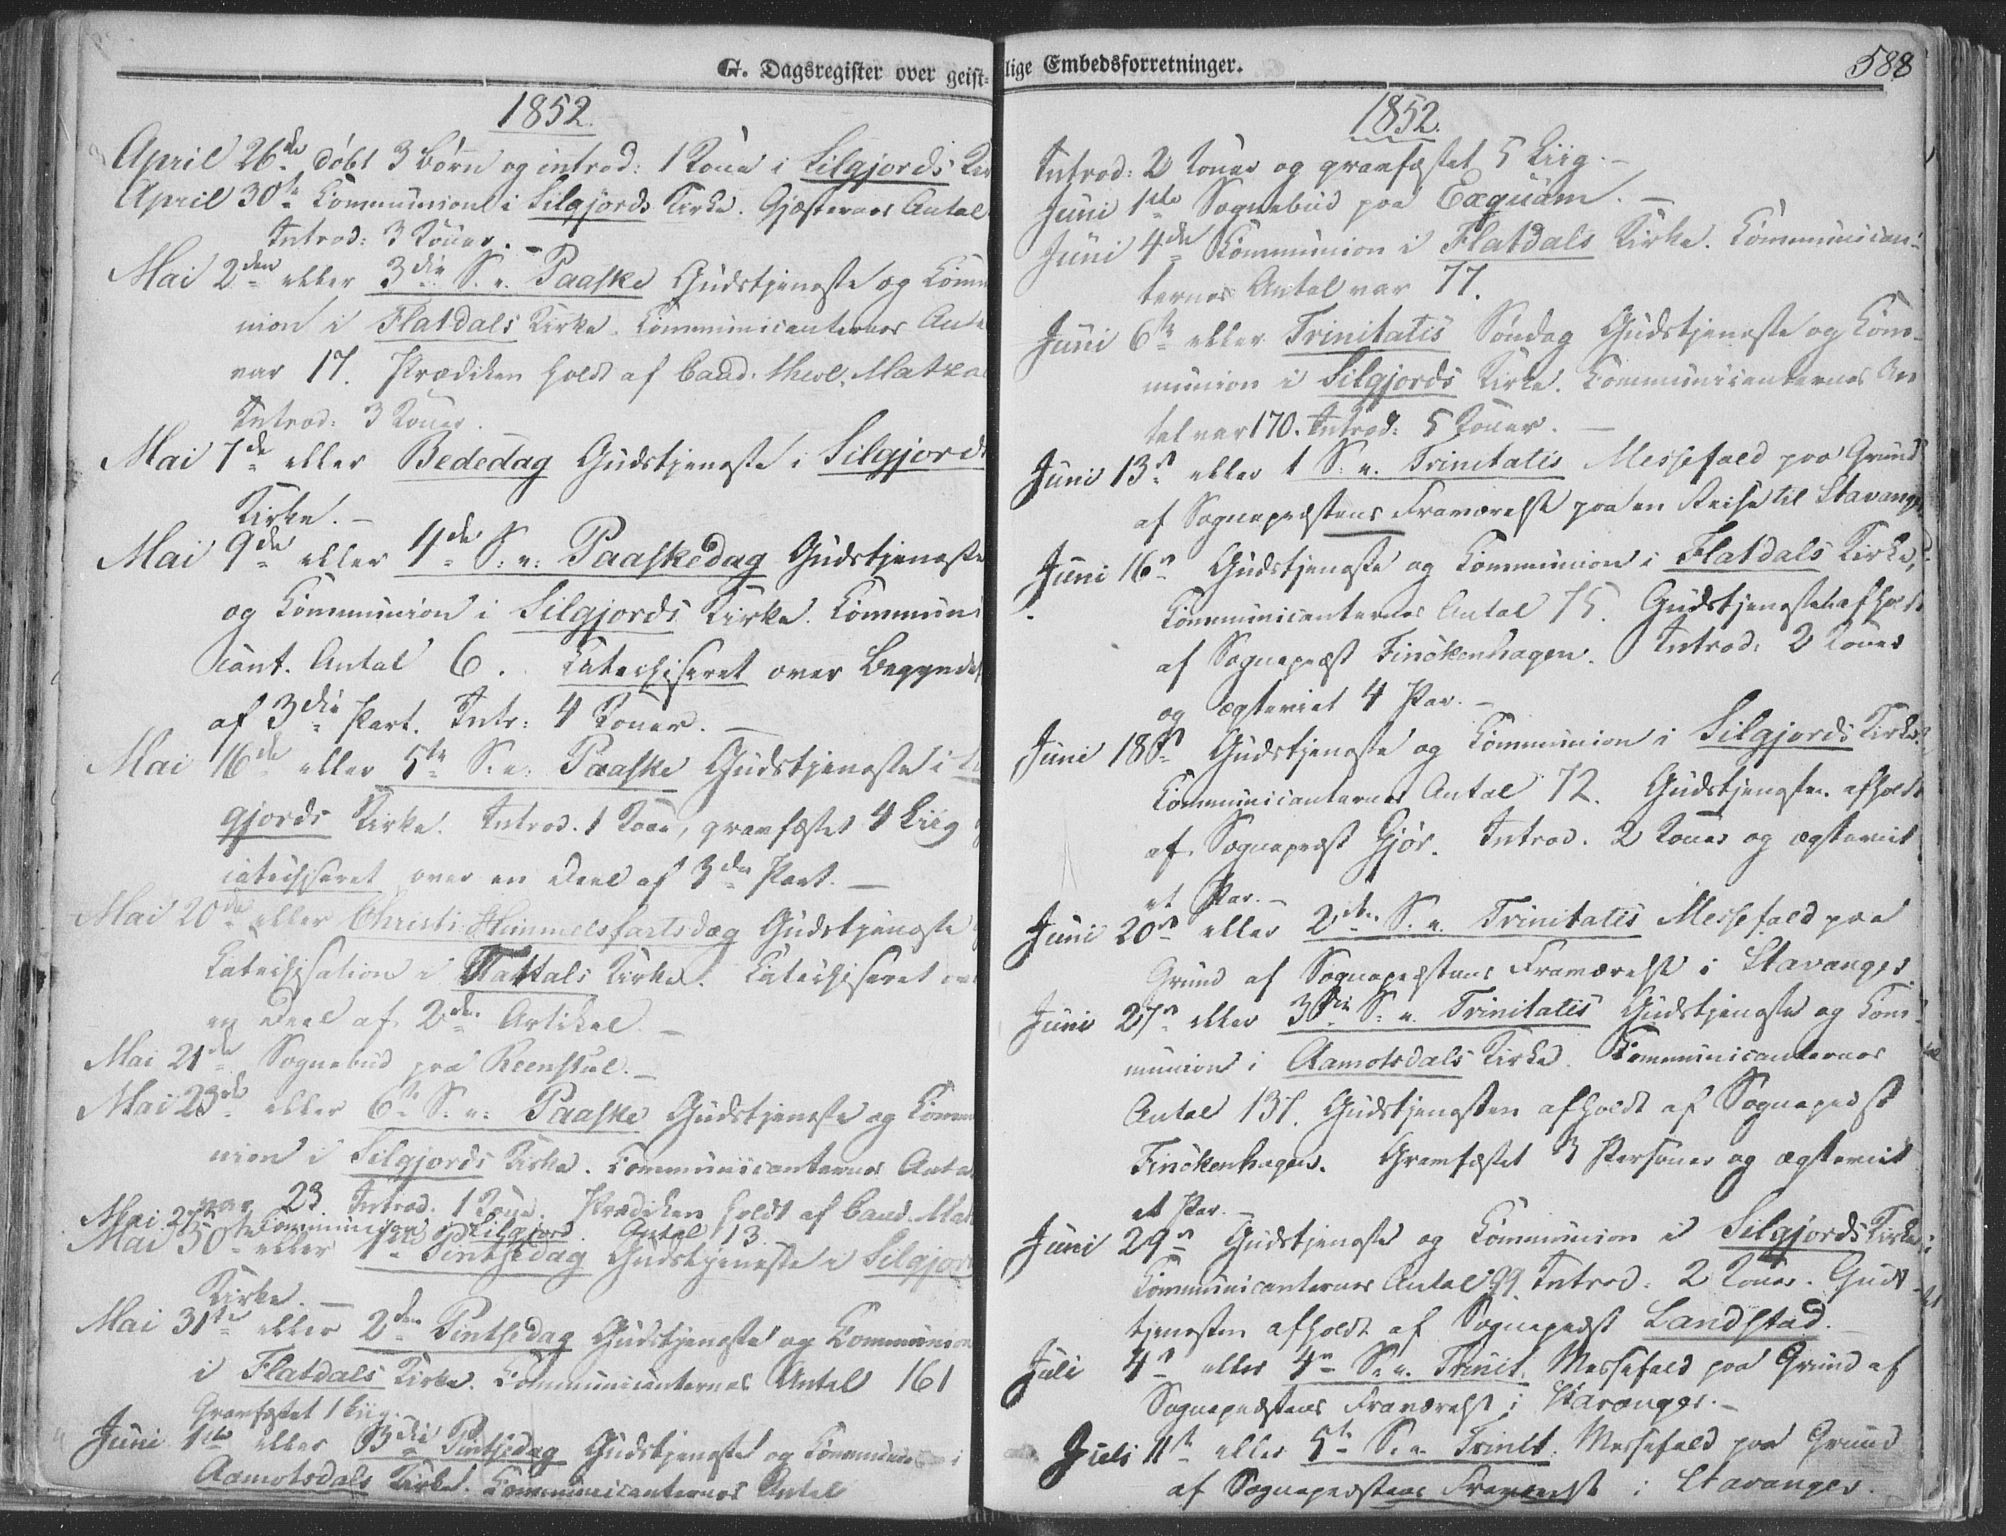 G. Dagsregister over geist-
1852.
April 26de døbt 3 Børn og introd: 1 Kone i Silgjords Kir
April 30te Communion i Silgjords Kirke. Gjæsternes Antal
Introd: 3 Koner. –
Mai 2den eller 3die S. e. Paaske Gudstjeneste og Commu
nion i Flatdals Kirke. Communicanternes Anta
var 17. Prædiken holdt af Cand. theol.
Introd: 3 Koner.
Mai 7de eller Bededag Gudstjeneste i Silgjords
Kirke. –
Mai 9de eller 4de S. e. Paaskedag Gudstjeneste
og Communion i Silgjords Kirke. Communi
cant. Antal 6. Catechiseret over Begyndel
af 3die Part. Intr: 4 Koner. –
Mai 16de eller 5te S. e. Paaske Gudstjeneste i Sil
gjords Kirke. Introd. 1 Kone, gravfæstet 4 Liig
catechiseret over en Deel af 3die Part. –
Mai 20de eller Christi Himmelsfartsdag Gudstjeneste
Catechisation i Flatdals Kirke. Catechiseret ove
en Deel af 2den Artikel. –
Mai 21de Sognebud paa –
Mai 23de eller 6te S. e. Paaske Gudstjeneste og Commu
nion i Silgjords Kirke. Communicanternes Antal
var 23. Introd. 1 Kone. Prædiken holdt af Cand.
Mai 27de Communion i Silgjord. Antal 13.
Mai 30te eller 1ste Pintsedag Gudstjeneste i Silgjor
Kirke. –
Mai 31te eller 2den Pintsedag Gudstjeneste og Communion
i Flatdals Kirke. Communicanternes Antal 161
Gravfæstet 1 Liig.
Juni 1ste eller 3die Pintsedag Gudstjeneste og Communion i
Aamotsdals Kirke. Communicanternes Antal
lige Embedsforretninger.
588
1852.
Introd: 2 Koner og gravfæstet 5 Liig. –
Juni 1ste Sognebud paa –
Juni 4de Communion i Flatdals Kirke. Communican-
ternes Antal var 77.
Juni 6te eller Trinitatis Søndag Gudstjeneste og Com-
munion i Silgjords Kirke. Communicanternes An
tal var 170. Introd: 5 Koner. –
Juni 13de eller 1 S. e. Trinitatis Messefald paa Grund
af Sognepræstens Fraværelse paa en Reise til Stavange
Juni 16de Gudstjeneste og Communion i Flatdals Kirke,
Communicanternes Antal 75. Gudstjenesten afholdt
af Sognepræst Finckenhagen. Introd: 2 Koner
og ægteviet 4 Par. –
Juni 18de Gudstjeneste og Communion i Silgjords Kirke.
Communicanternes Antal 72. Gudstjenesten afholdt
af Sognepræst Gjør. Introd. 2 Koner og ægteviet
et Par. –
Juni 20de eller 2den S. e. Trinitatis Messefald paa
Grund af Sognepræstens Fraværelse i Stavanger.
Juni 27de eller 3die S. e. Trinitatis Gudstjeneste og Com-
munion i Aamotsdals Kirke. Communicanternes
Antal 137. Gudstjenesten afholdt af Sognepræst
Finckenhagen. Gravfæstet 3 Personer og ægteviet
et Par. –
Juni 29de Gudstjeneste og Communion i Silgjords Kirke
Communicanternes Antal 99. Introd: 2 Koner. Guds-
tjenesten afholdt af Sognepræst Landstad. –
Juli 4de eller 4de S. e. Trinit. Messefald paa Grund af
Sognepræstens Fraværelse i Stavanger. –
Juli 11te eller 5te S. e. Trinit. Messefald paa Grund
af Sognepræstens Fraværelse i Stavanger.